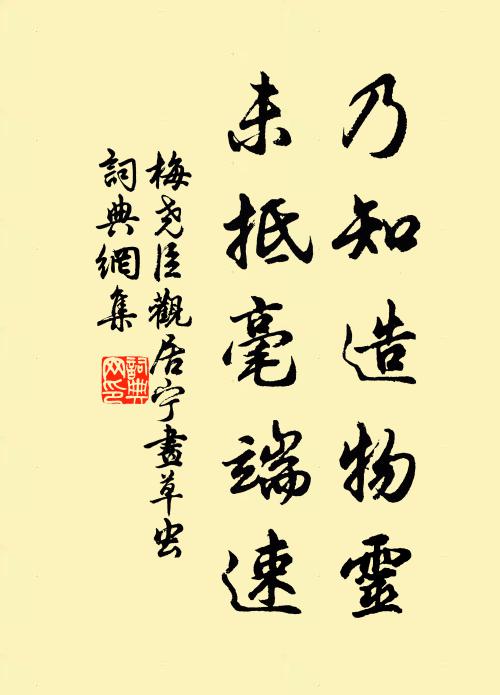 乃知造物靈
未抵毫端速
梅堯臣觀居宁畫草虫
詞典網集
詞典
网印